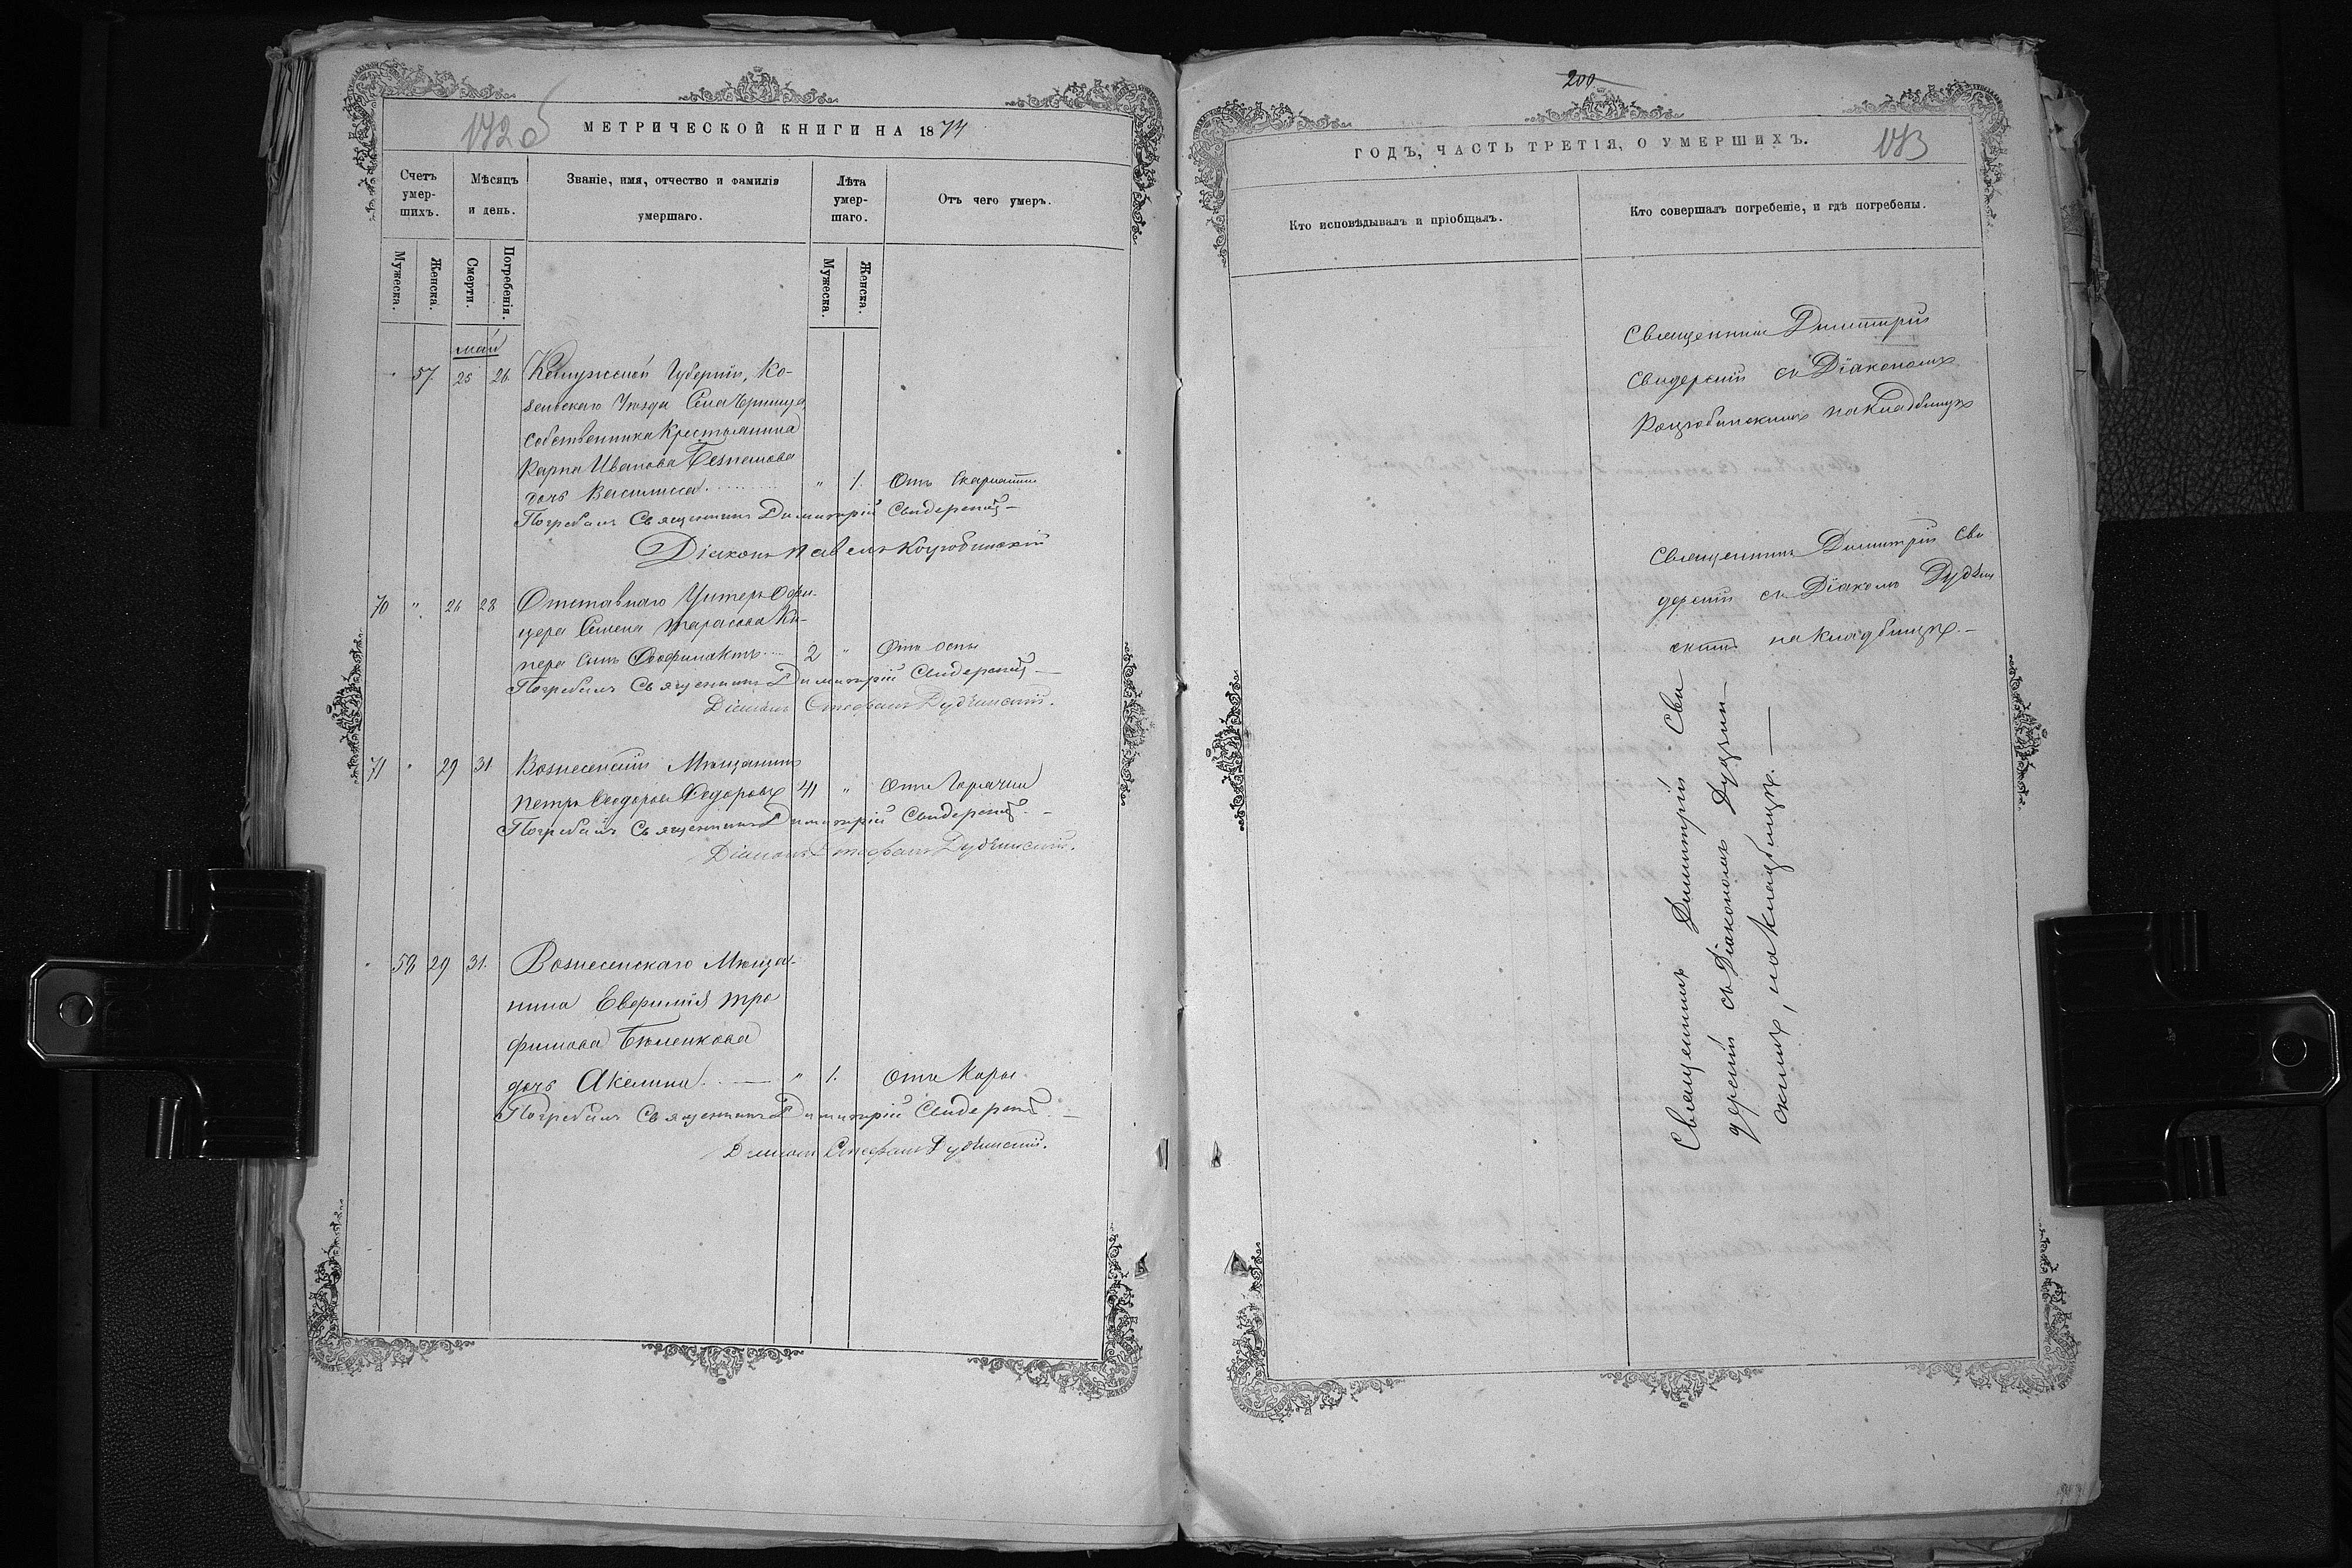 МЕТРИЧЕСКОЙ КНИГИ НА 1874
Счетъ умер-шихъ.
Мѣсяцъ и день.
Званіе, имя, отчество и фамилія умершаго.
Лѣта умер-шаго.
Отъ чего умеръ.
Мужеска.
Женска.
Смерти.
Погребенія.
Мужеска.
Женска.
май
" 57. 25 26. Калужской Губерніи, Ко-
зельскаго Уѣзда Села
собственника Крестьянина
Карпа Иванова
дочь Василиса " 1. Отъ Скарлатины
Погребалъ Священникъ Димитрій Свидерскій
Діаконъ Павелъ Коцюбинскій
70 " 26 28 Отставнаго Унтеръ Офи-
цера Семена Тарасова Ку-
чера сынъ Феофилактъ 2 " Отъ Оспы
Погребалъ Священникъ Димитрій Свидерскій
Діаконъ Стефанъ Дубинскій.
71 " 29 31. Вознесенскій Мѣщанинъ
Петръ Феодоровъ 41 " Отъ Горячки
Погребалъ Священникъ Димитрій Свидерскій
Діаконъ Стефанъ Дубинскій.
" 58 29 31. Вознесенскаго Мѣща-
нина Евфимія Тро
фимова Бѣленкова
дочь Акелина " 1. Отъ Кори
Погребалъ Священникъ Димитрій Свидерскій
Діаконъ Стефанъ Дубинскій.
200
173
ГОДЪ, ЧАСТЬ ТРЕТІЯ, О УМЕРШИХЪ.
Кто исповѣдывалъ и пріобщалъ.
Кто совершалъ погребеніе, и гдѣ погребены.
Священникъ Димитрій
Свидерскій съ Діакономъ
Коцюбинскимъ на Кладбищѣ
Священникъ Димитрій Сви
дерскій съ Діакомъ Дубин
скимъ на Кладбищѣ.
Священникъ Димитрій Сви
дерскій съ Діакономъ Дубин
скимъ, на Кладбищѣ.